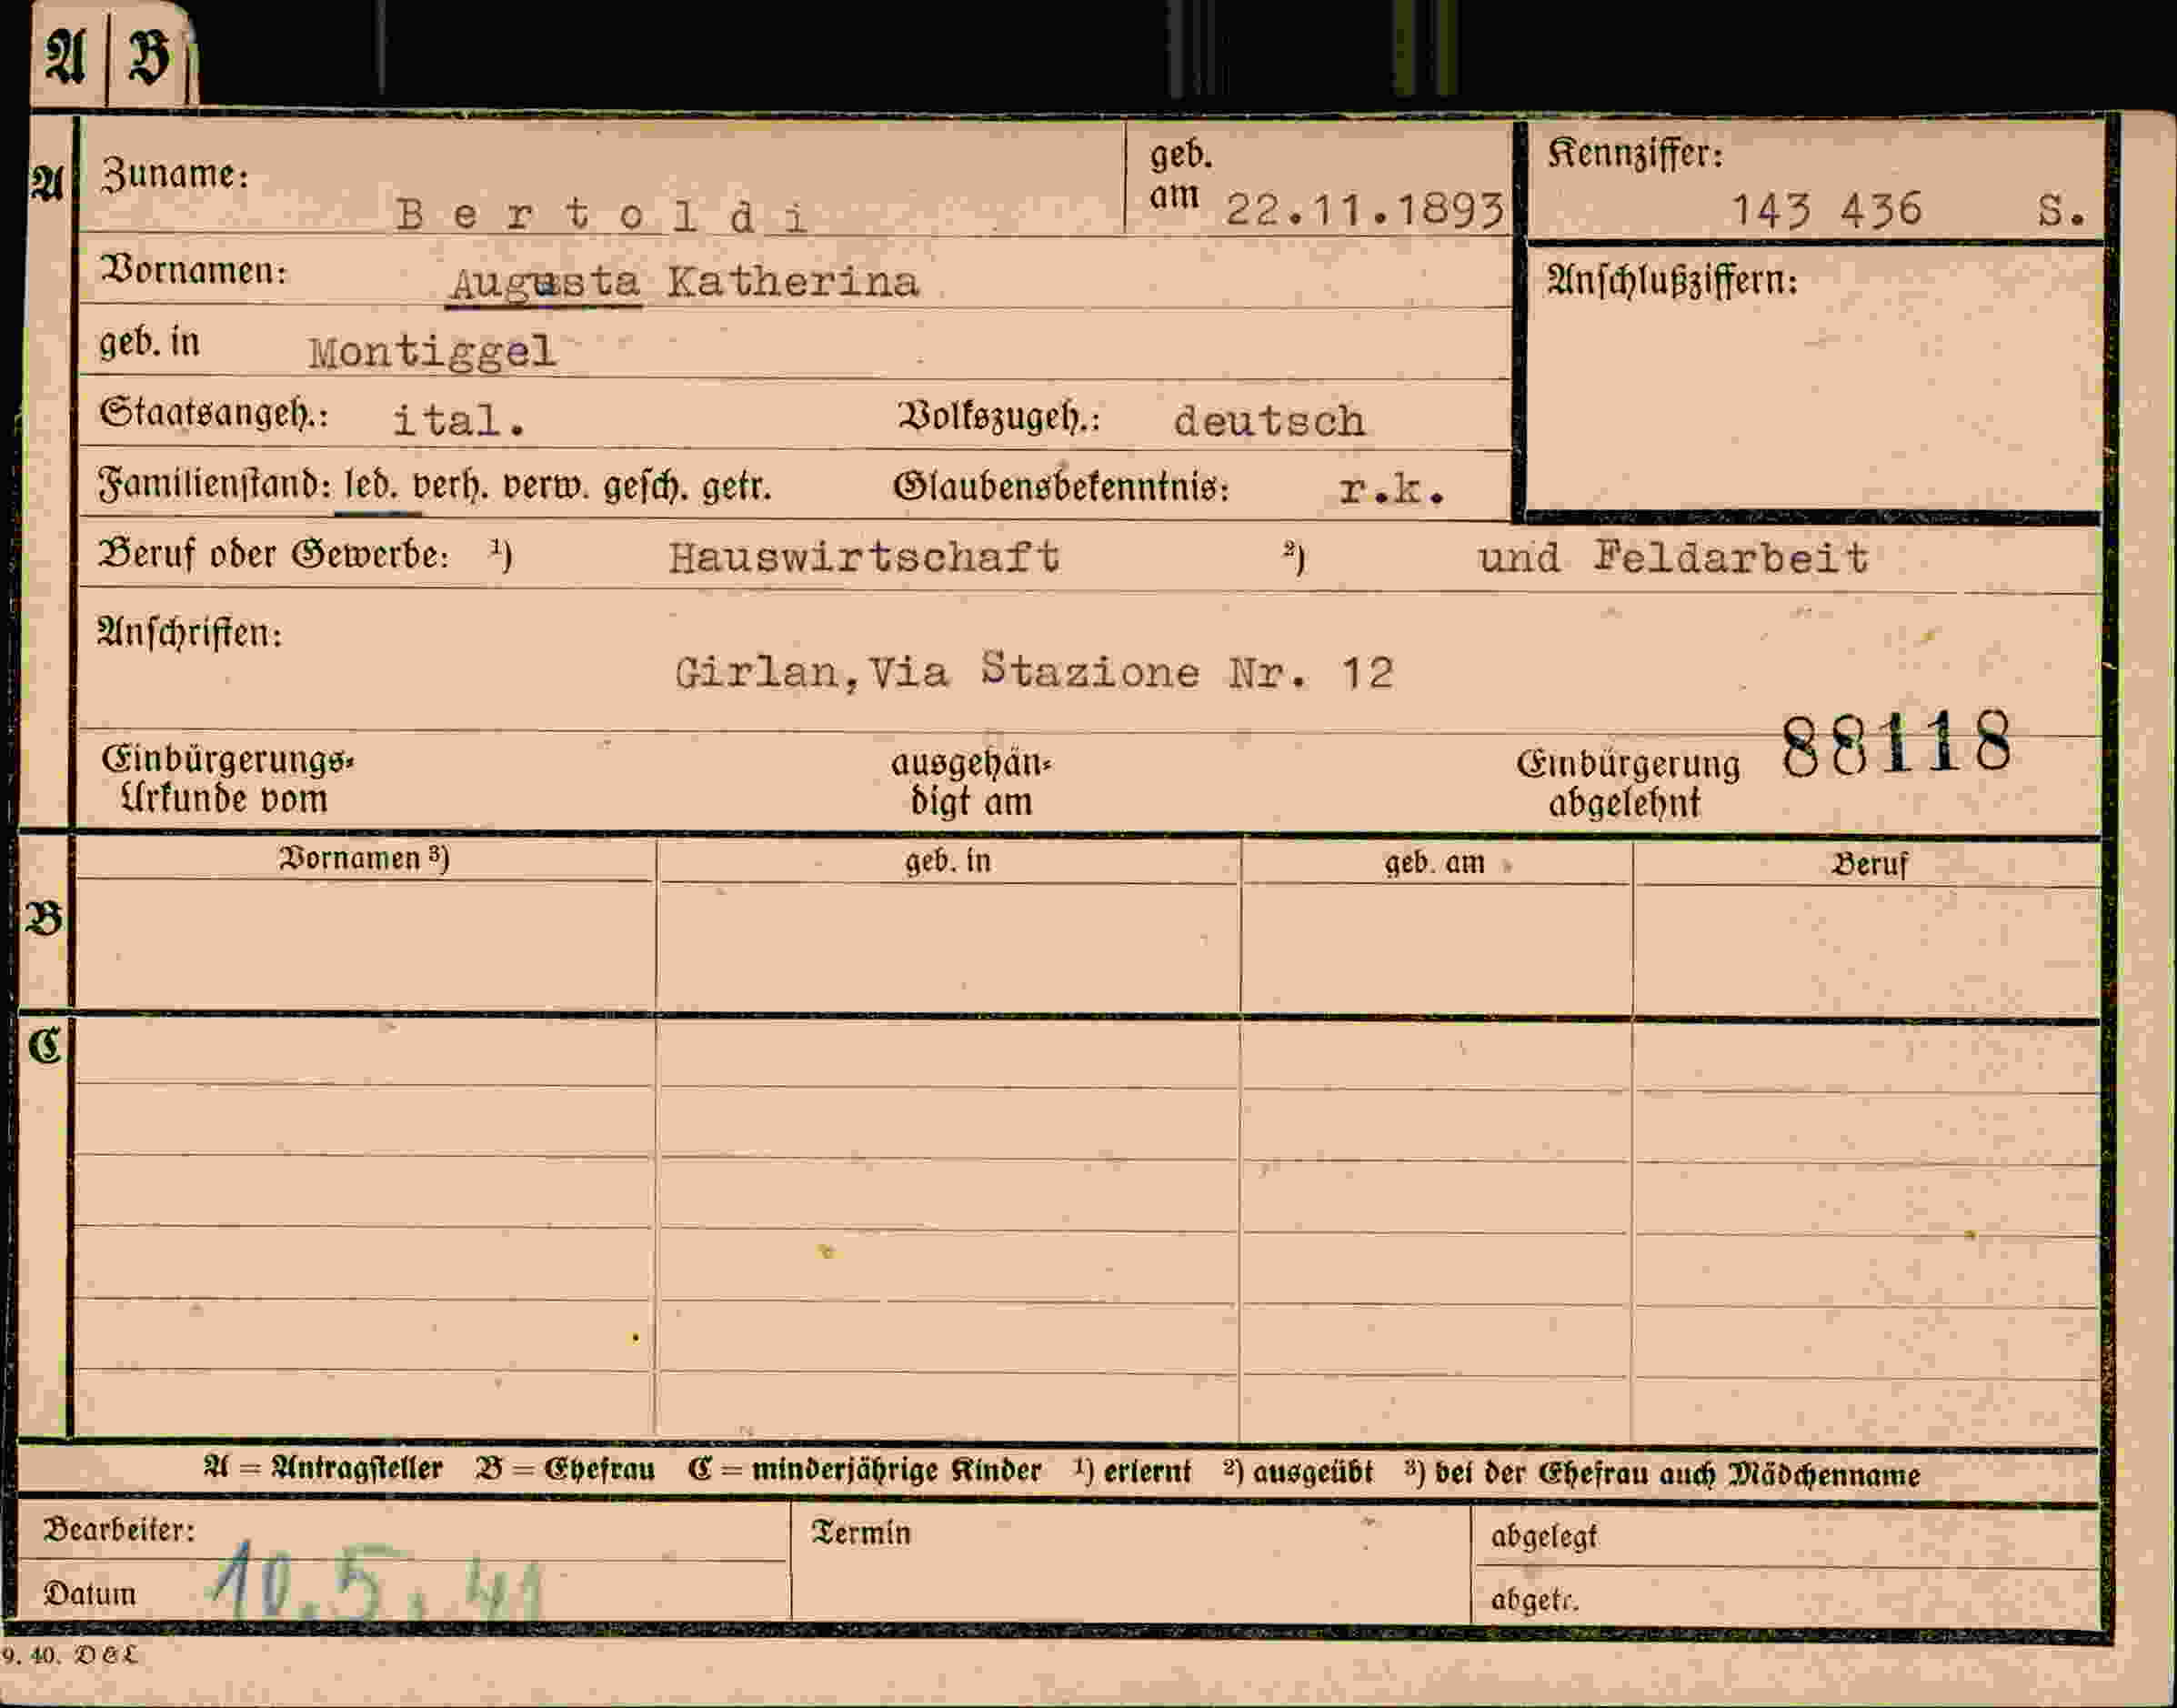 A | B
A
Zuname: B e r t o l d i geb. am 22.11.1893 Kennziffer: 143 436 S.
Vornamen: Augusta Katherina Anschlußziffern:
geb. in Montiggel
Staatsangeh.: ital. Volkszugeh.: deutsch
Familienstand: led. verh. verw. gesch. getr. Glaubensbekenntnis: r.k.
Beruf oder Gewerbe: ¹) Hauswirtschaft ²) und Feldarbeit
Anschriften:
Girlan,Via Stazione Nr. 12
88118
Einbürgerungs- ausgehän- Einbürgerung
Urkunde vom digt am abgelehnt
Vornamen ³) geb. in geb. am Beruf
B
C
A = Antragsteller B = Ehefrau C = minderjährige Kinder ¹) erlernt ²) ausgeübt ³) bei der Ehefrau auch Mädchenname
Bearbeiter: Termin abgelegt
Datum 10.5.41 abgetr.
9. 40. D & L